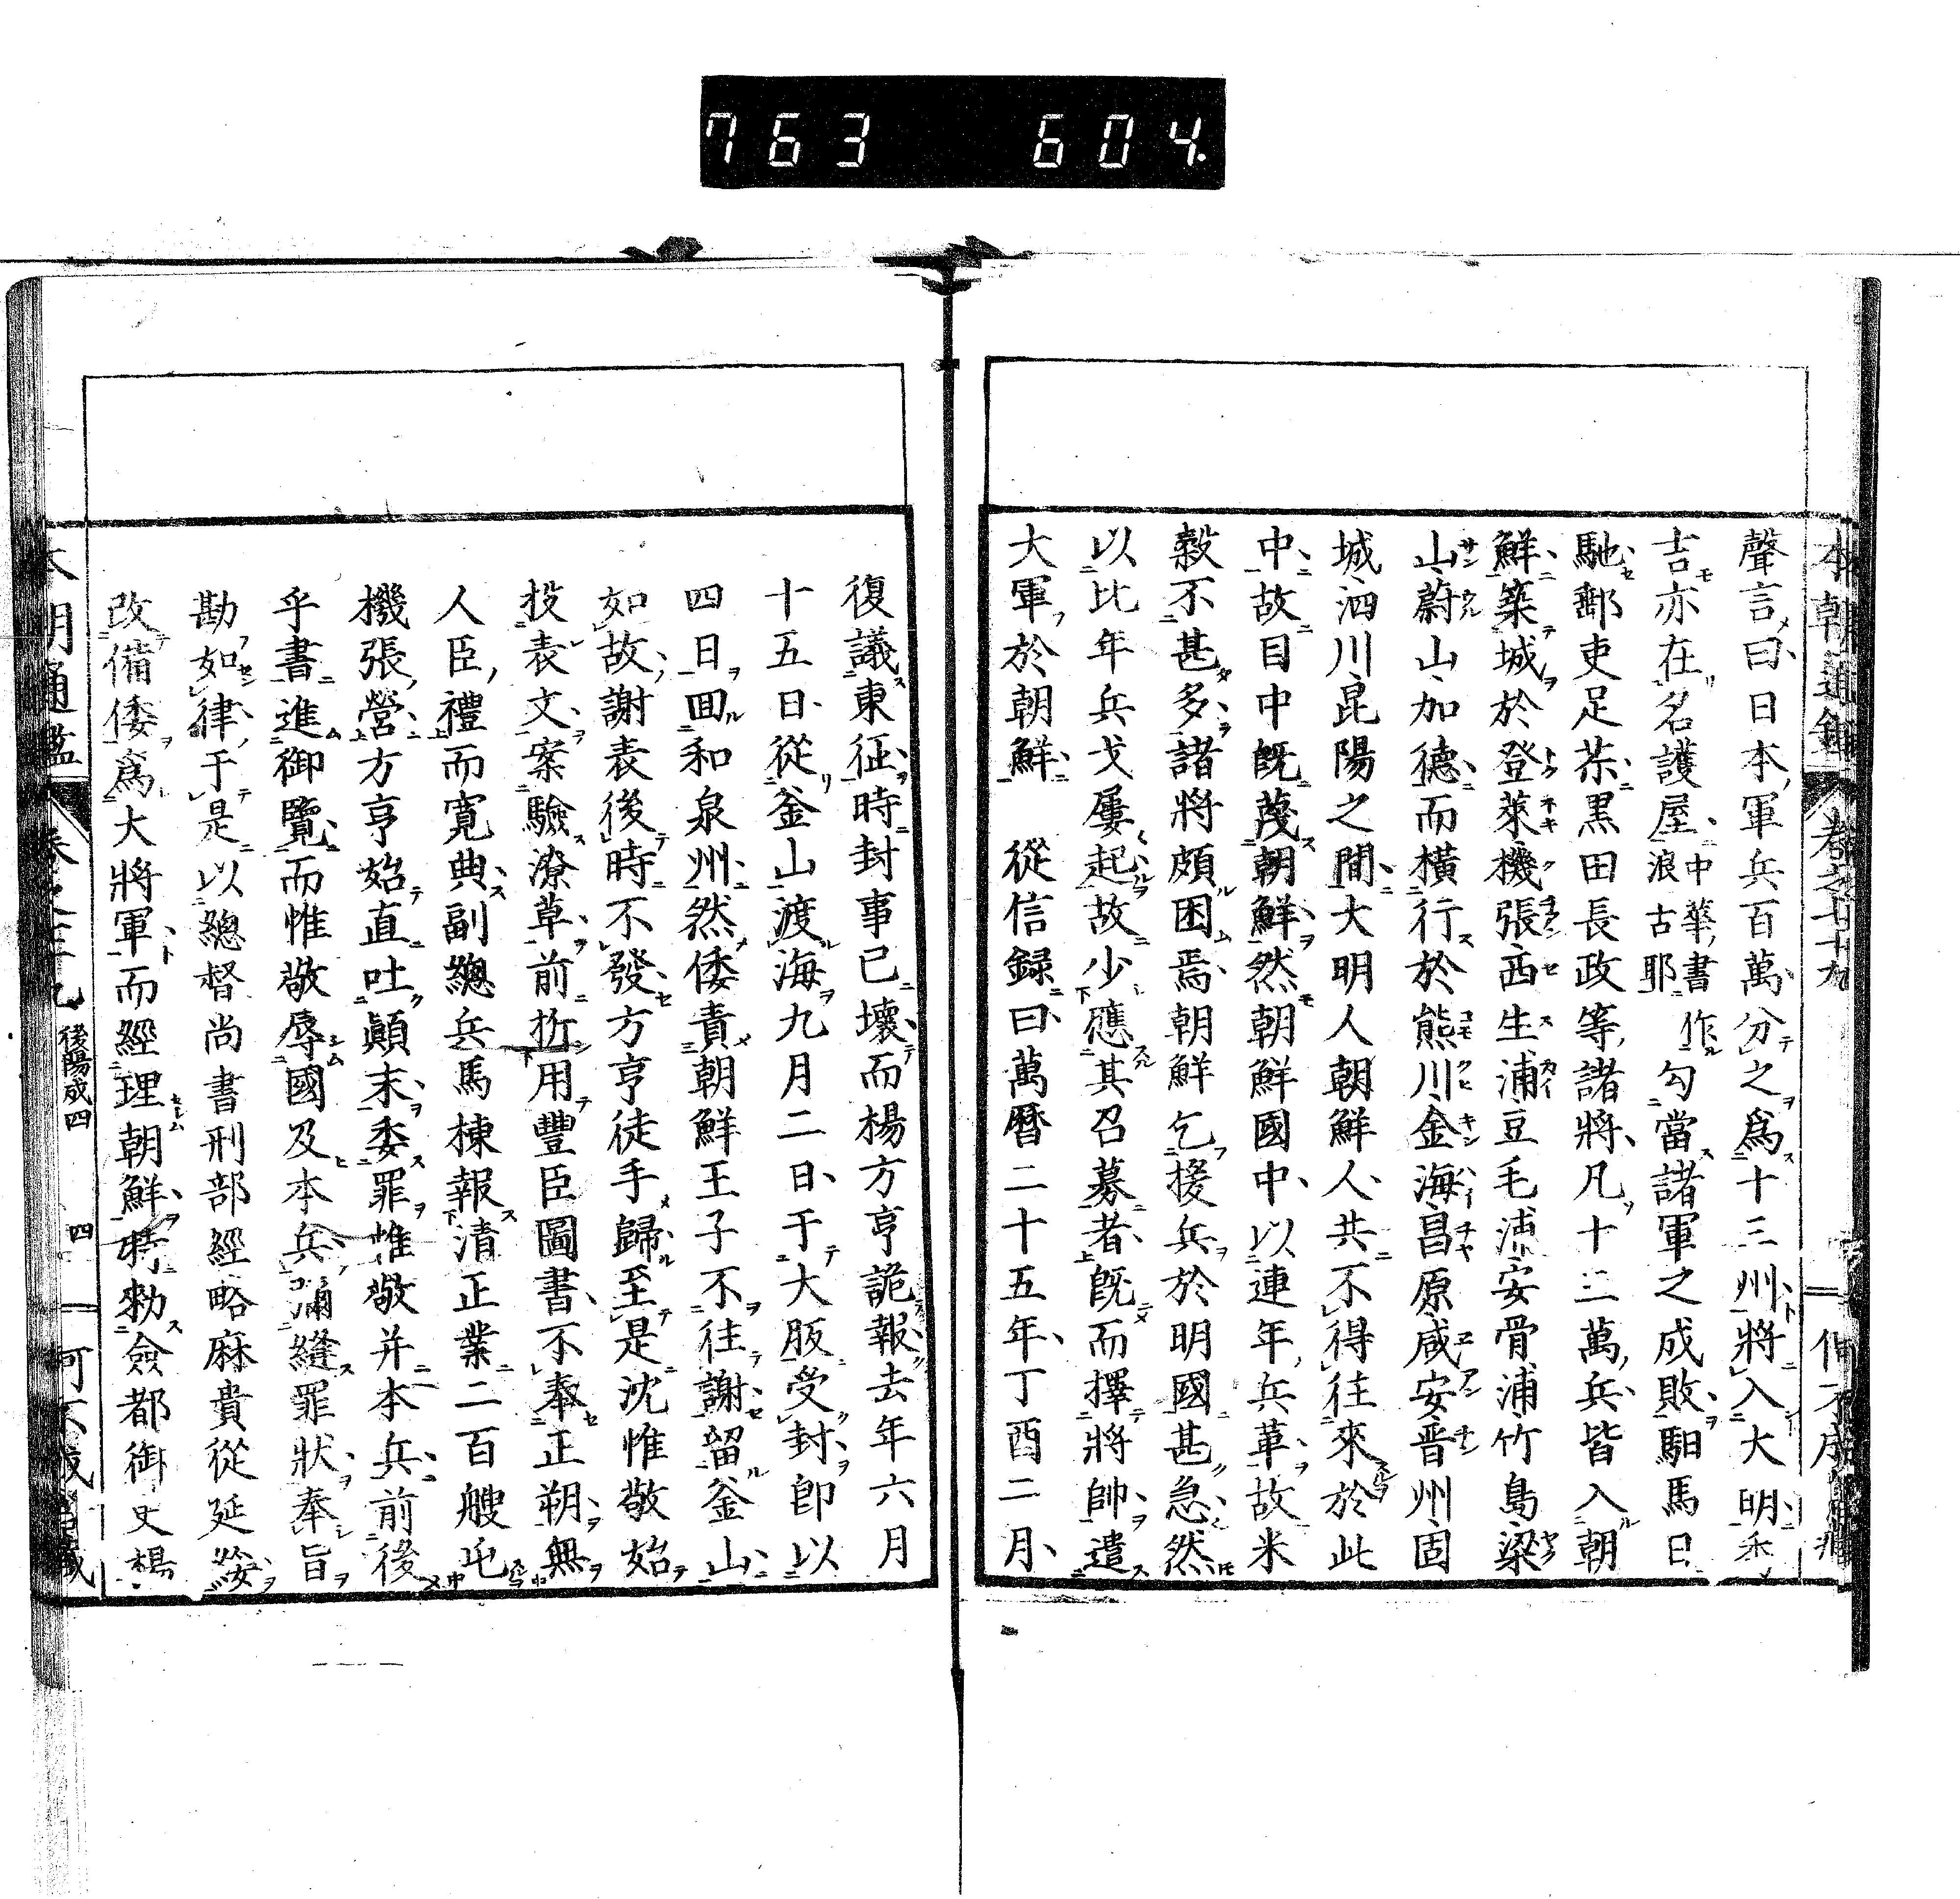 763 604.
本朝通鑑 卷之七十九
聲言曰日本軍兵百萬分之爲十三州將入大明秀
吉亦在名護屋中華書作浪古耶勾當諸軍之成敗馹馬日
馳郵吏足茶黒田長政等諸將凡十三萬兵皆入朝
鮮築城於登萊機張西生浦豆毛浦安骨浦竹島梁
山蔚山加德而横行於熊川金海昌原咸安晋州固
城泗川昆陽之間大明人朝鮮人共不得往來於此
中故目中既蔑朝鮮然朝鮮國中以連年兵革故米
穀不甚多諸將頗困焉朝鮮乞援兵於明國甚急然
以比年兵戈屢起故少應其召募者既而擇將帥遣
大軍於朝鮮 從信録曰萬曆二十五年丁酉二月
復議東征時封事已壞而楊方亨詭報去年六月
十五日從釜山渡海九月二日于大阪受封即以
四日回和泉州然倭責朝鮮王子不往謝留釜山
如故謝表後時不發方亨徒手歸至是沈惟敬始
投表文案驗潦草前折用豐臣圖書不奉正朔無
人臣禮而寛典副總兵馬棟報清正業二百艘屯
機張營方亨始直吐顛末委罪惟敬并本兵前後
手書進御覽而惟敬辱國及本兵彌縫罪狀奉旨
勘如律于是以總督尚書刑部經略麻貴從延綏
改備倭爲大將軍而經理朝鮮時勅僉都御史楊
本朝通鑑 卷之七十九 後陽成四 四